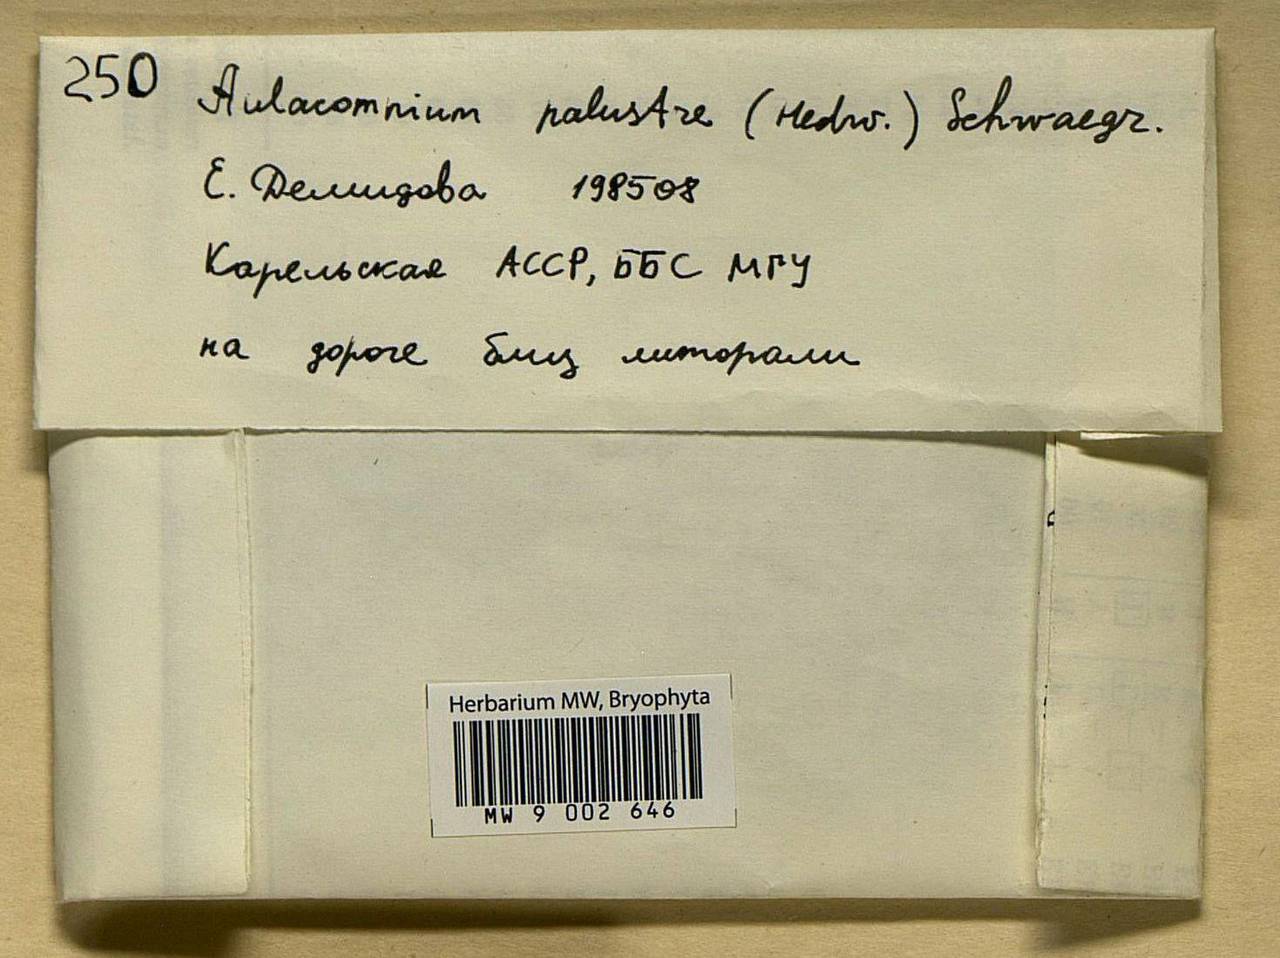 250
Aulacomnium palustre (Hedw.) Schwaegr.
Е. Демидова 198508
Карельская АССР, ББС МГУ
на дороге близ литорали
Herbarium MW, Bryophyta
MW 9 002 646